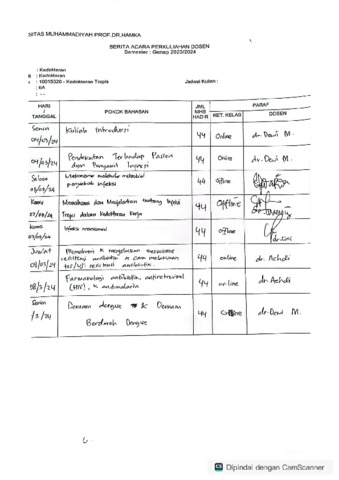 SITAS MUHAMMADIYAH PROF.DR.HAMKA
BERITA ACARA PERKULIAHAN DOSEN
Semester : Genap 2023/2024
: Kedokteran
: Kedokteran
: 10015020 - Kedokteran Tropis
Jadwal Kuliah :
: 6A
: - -
HARI / TANGGAL
POKOK BAHASAN
JML MHS HADIR
KET. KELAS
PARAF
DOSEN
Senin 04/03/24
Kuliah Introduksi
44
Online
dr. Dewi M.
04/03/24
Pendekatan Terhadap Pasien dan Penyakit Infeksi
44
dr. Dewi M.
Selasa
Mekanisme molekuler mikrobial penyebab infeksi
44
Offline
Kamis 07/03/24
Memahami dan Menjelaskan tentang Infeksi
dalam Kedokteran Kerja
44
Offline
Kamis
Infeksi nosokomial
44
offline
Jum'at 08/03/24
Memahami & menjelaskan mekanisme resistensi antibiotik & cara melakukan tes/uji resistensi antibiotik
44
online
dr. Achdi
Farmakologi antibiotik, antiretroviral (HIV), & antimalaria
44
online
dr. Achdi
Senin
Demam dengue & Demam Berdarah Dengue
44
Offline
dr. Dewi M.
CS Dipindai dengan CamScanner